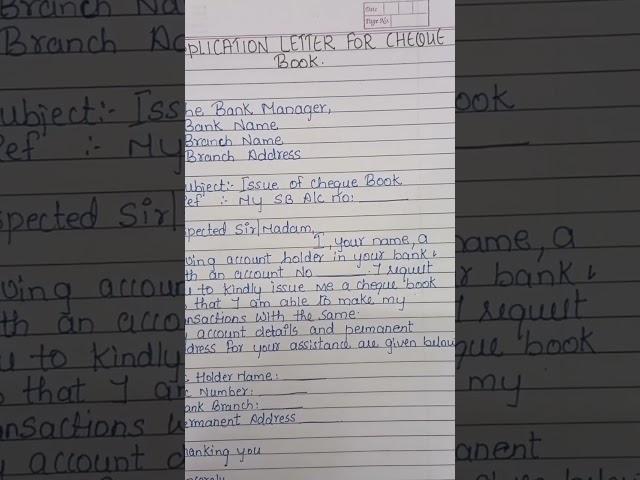 Date
Page No.
PPLICATION LETTER FOR CHEQUE
Book.
he Bank Manager,
Bank Name
Branch Name
Branch Address
ubject:- Issue of cheque Book
ef :- My SB A/c no:
spected Sir/Madam,
I, your name, a
ving account holder in your bank &
th an account No I request
u to kindly issue me a cheque book
that I am able to make my
nsactions with the same.
account details and permanent
dress for your assistance are given below
Holder Name:
Number:
ank Branch:
ermanent Address
hanking you